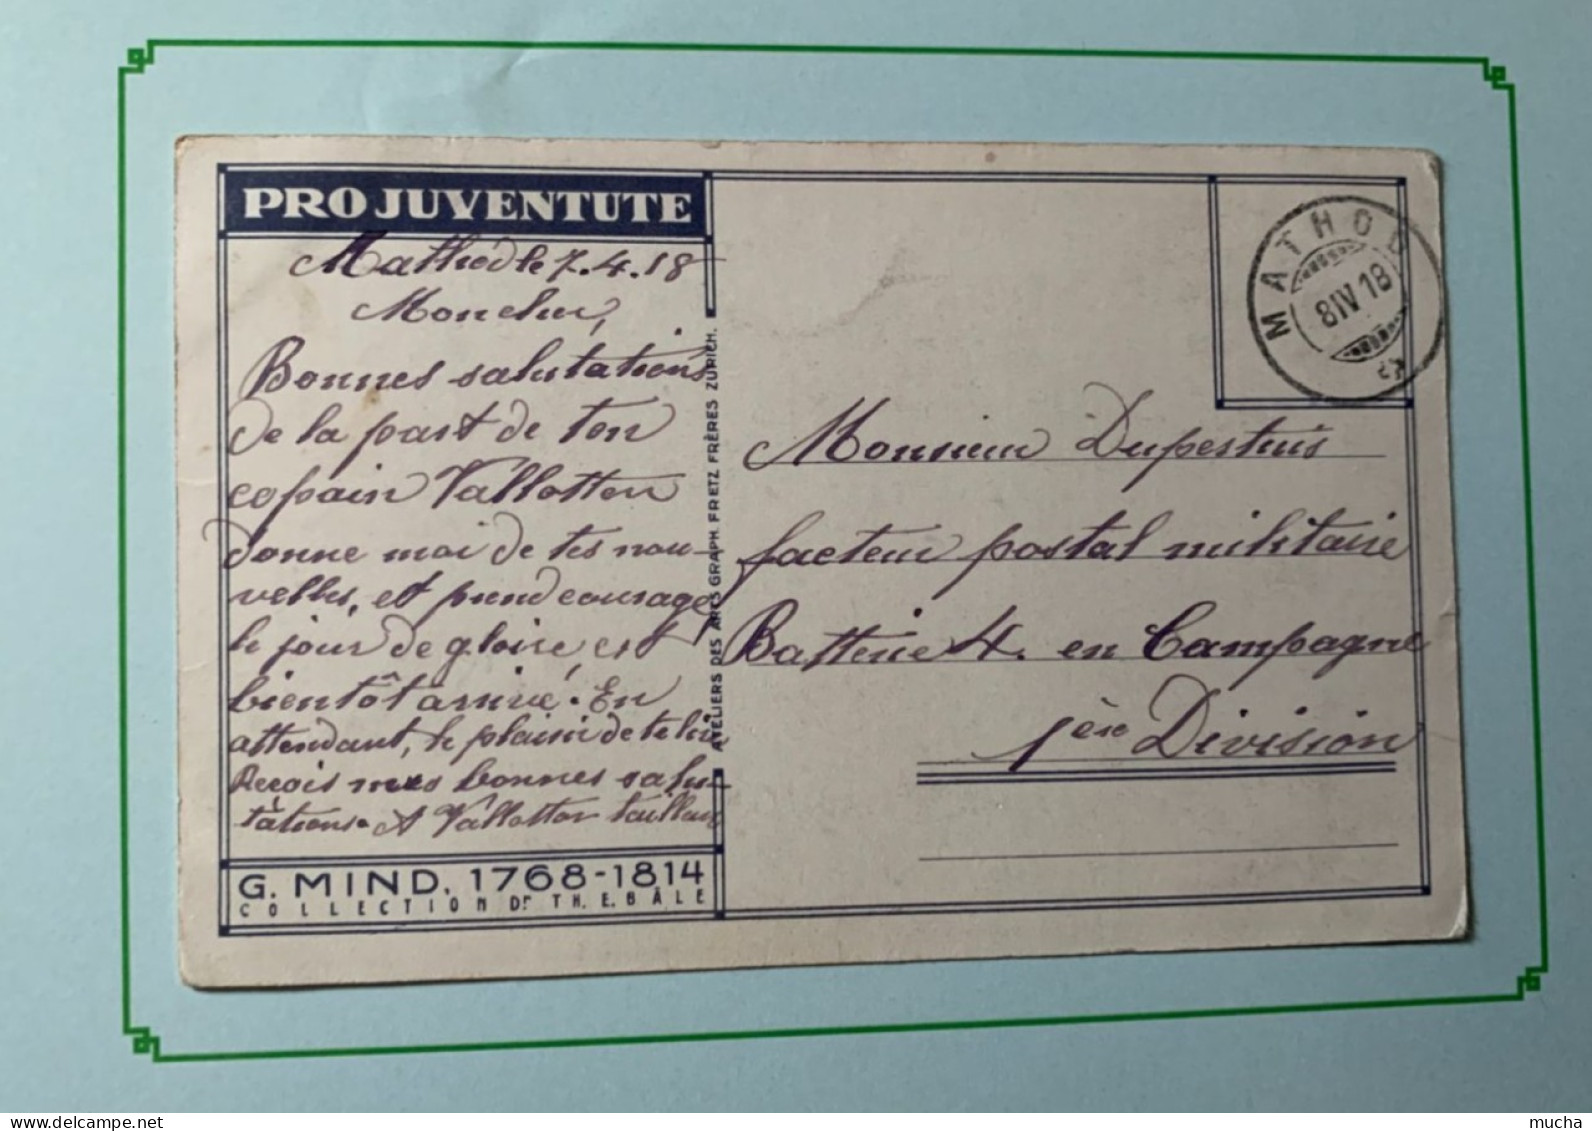 PRO JUVENTUTE
Mathod le 7.4.18
Mon cher,
Bonnes salutations
de la part de ton
copain Vallotton
donne moi de tes nou-
velles, et prend courage
le jour de gloire est
bientôt arrivé. En
attendant, le plaisir de te lire
Reçois mes bonnes salu-
tations. A Vallotton
G. MIND. 1768-1814
COLLECTION Dr TH. E. BÂLE
ATELIERS DES ARTS GRAPH. FRETZ FRÈRES ZURICH.
MATHOD
8 IV 18
Monsieur Dupertuis
facteur postal militaire
Batterie 4. en Campagne
1ère Division
www.delcampe.net
mucha